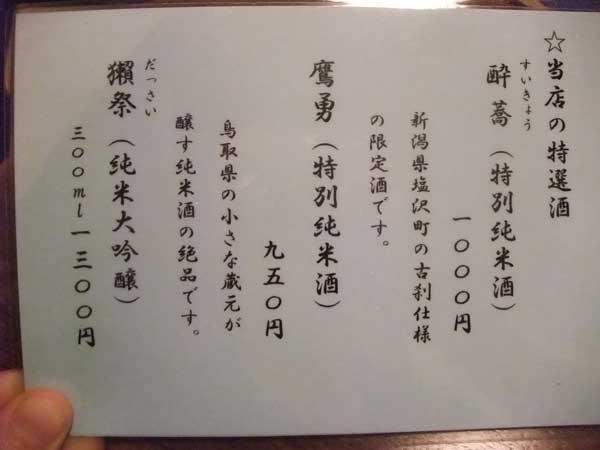 ☆当店の特選酒
すいきょう
酔蕎（特別純米酒）
一〇〇〇円
新潟県塩沢町の古刹仕様
の限定酒です。
鷹勇（特別純米酒）
九五〇円
鳥取県の小さな蔵元が
醸す純米酒の絶品です。
だっさい
獺祭（純米大吟醸）
三〇〇ml一三〇〇円